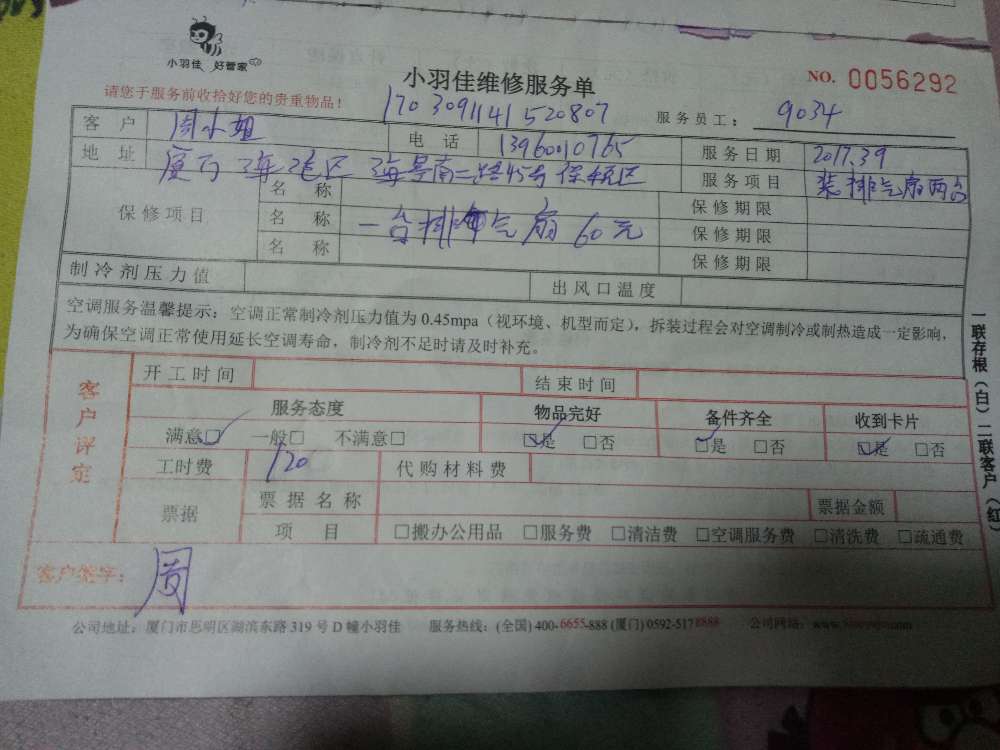 小羽佳 好管家
小羽佳维修服务单
NO. 0056292
请您于服务前收拾好您的贵重物品！
1703091141520807
服务员工： 9034
客户 周小姐 电话 13960010765 服务日期 2017.3.9
地址 厦门海沧区海景南二路45号保税区 服务项目 装排气扇两台
保修项目 名称 保修期限
名称 一台排气扇 60元 保修期限
名称 保修期限
制冷剂压力值 出风口温度
空调服务温馨提示：空调正常制冷剂压力值为 0.45mpa（视环境、机型而定），拆装过程会对空调制冷或制热造成一定影响，
为确保空调正常使用延长空调寿命，制冷剂不足时请及时补充。
客户评定
开工时间 结束时间
服务态度 物品完好 备件齐全 收到卡片
满意☑ 一般□ 不满意□ ☑是 □否 ☑是 □否 ☑是 □否
工时费 120 代购材料费
票据 票据名称 票据金额
项目 □搬办公用品 □服务费 □清洁费 □空调服务费 □清洗费 □疏通费
客户签字：
公司地址：厦门市思明区湖滨东路 319 号 D 幢小羽佳 服务热线：(全国) 400-6655-888 (厦门) 0592-5178888 公司网络：
一联存根（白）二联客户（红）